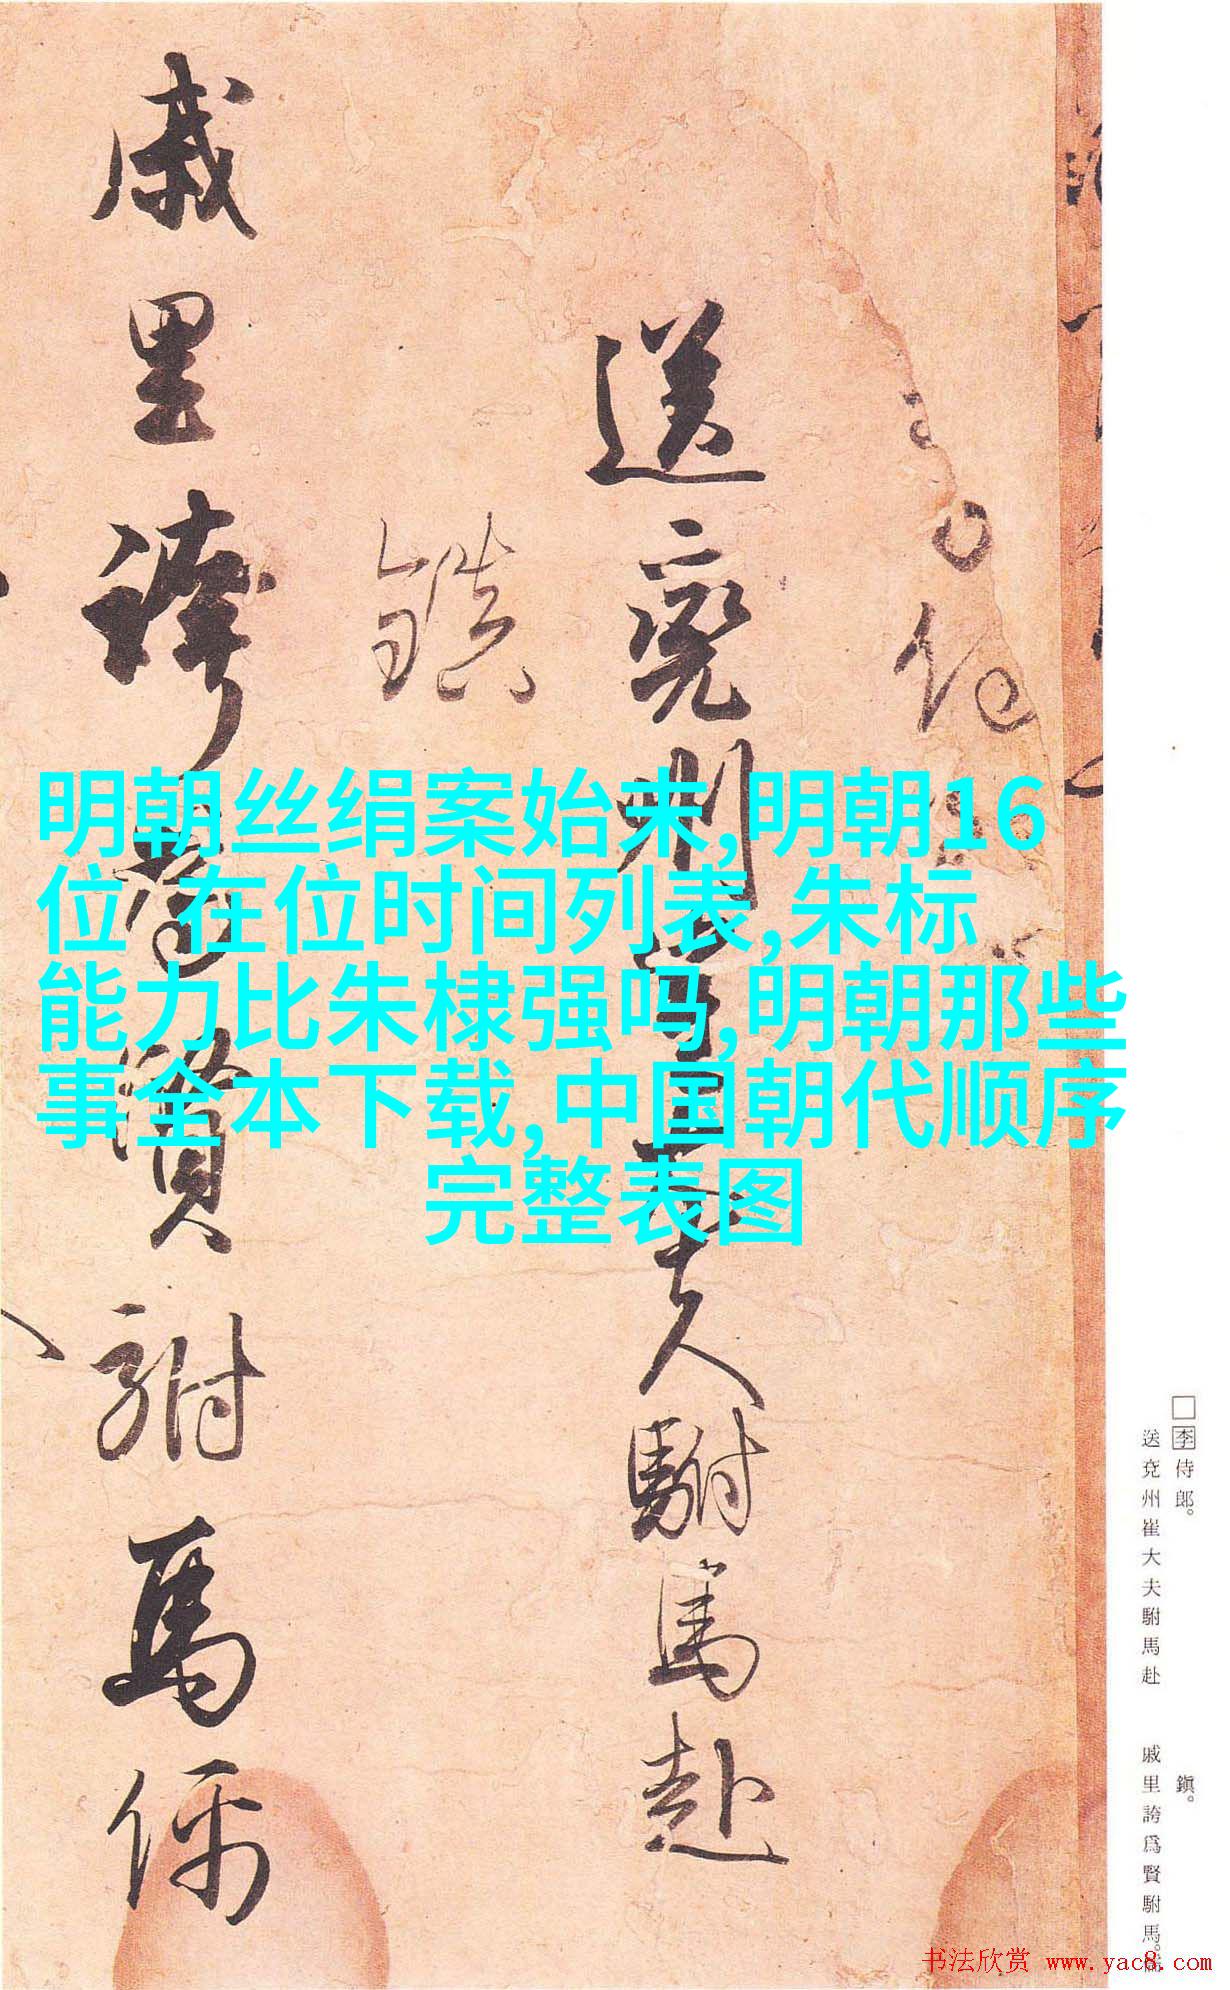 送兗州崔大夫駙馬赴
鎮
戚里誇為賢駙馬儒
明朝丝绢案始末,明朝16
位 在位时间列表,朱标
能力比朱棣强吗,明朝那些
事全本下载,中国朝代顺序
完整表图
□李侍郎。
送兗州崔大夫駙馬赴
鎮。
戚里誇爲賢駙馬。儒
书法欣赏 www.yac8.com